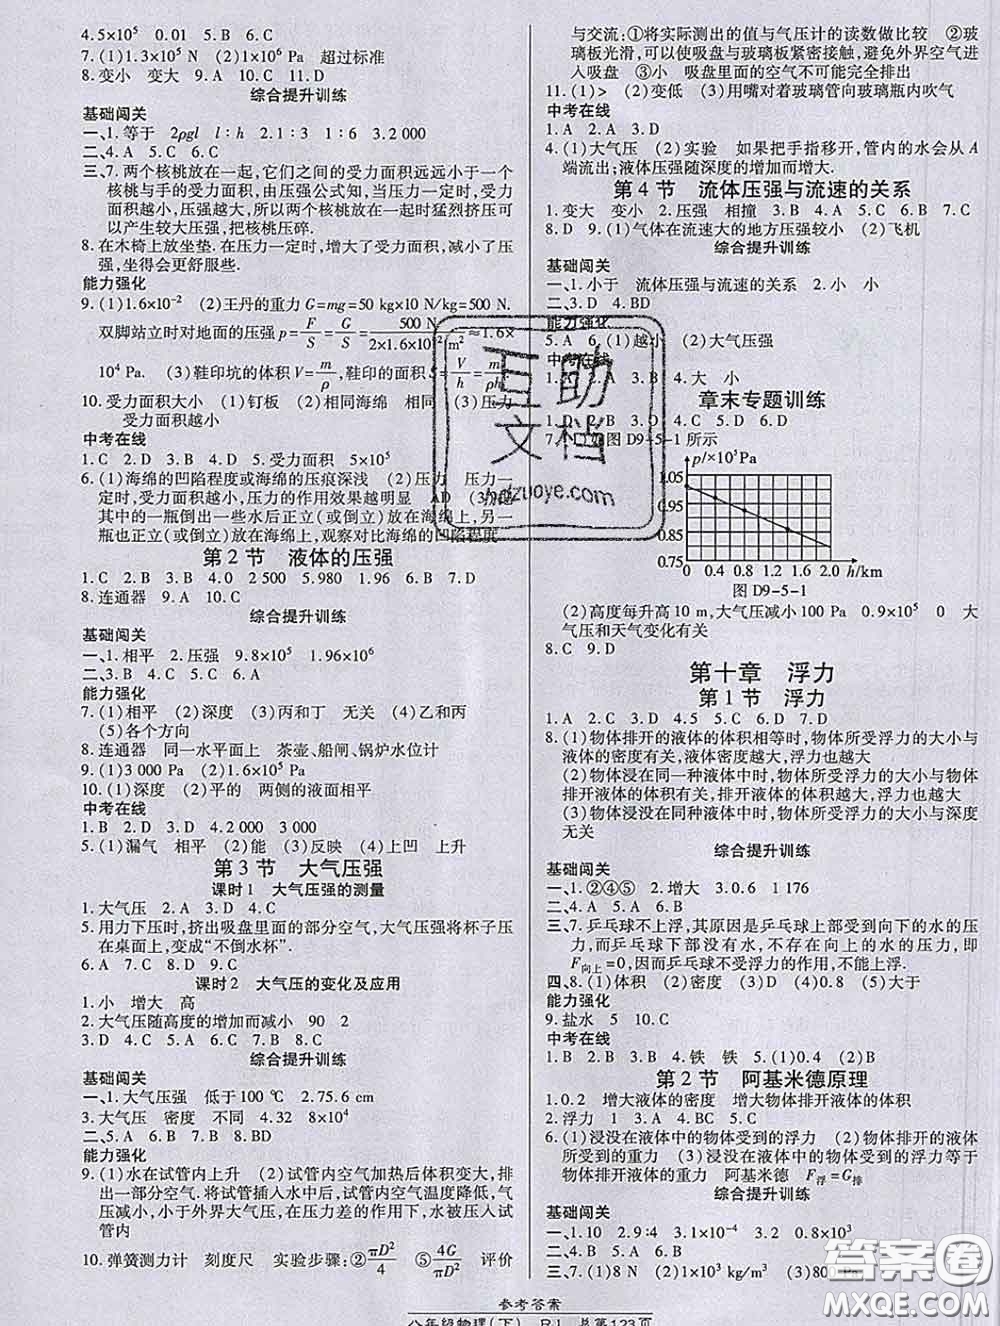 4.5×10⁵　0.01　5.B　6.C
7.(1)1.3×10⁵ N　(2)1×10⁶ Pa　超过标准
8.变小　变大　9.A　10.C　11.D
综合提升训练
基础闯关
一、1.等于　2ρgl　l∶h　2.1∶3　1∶6　3.2000
二、4.A　5.C　6.C
三、7.两个核桃放在一起,它们之间的受力面积远远小于一个
核桃与手的受力面积,由压强公式知,当压力一定时,受力
面积越小,压强越大,所以两个核桃放在一起时猛烈挤压可
以产生较大压强,把核桃压碎.
8.在木椅上放坐垫.在压力一定时,增大了受力面积,减小了压
强,坐得会更舒服些.
能力强化
9.(1)1.6×10⁻²　(2)王丹的重力 G=mg=50 kg×10 N/kg=500 N.
双脚站立时对地面的压强 p=F/S=G/S=500 N/2×1.6×10⁻² m²≈1.6×
10⁴ Pa.　(3)鞋印坑的体积 V=m/ρ,鞋印的面积 S=V/h=m/ρh
10.受力面积大小　(1)钉板　(2)相同海绵　相同　(3)压力
受力面积越小
中考在线
1.C　2.D　3.B　4.D　5.受力面积　5×10⁵
6.(1)海绵的凹陷程度或海绵的压痕深浅　(2)压力　压力一
定时,受力面积越小,压力的作用效果越明显　AD　(3)把
其中的一瓶倒出一些水后正立(或倒立)放在海绵上,另一
瓶也正立(或倒立)放在海绵上,观察对比海绵的凹陷程度
第 2 节　液体的压强
1.C　2.B　3.B　4.0　2 500　5.980　1.96　6.B　7.D
8.连通器　9.A　10.C
综合提升训练
基础闯关
一、1.相平　2.压强　9.8×10⁵　1.96×10⁶
二、3.B　4.C　5.C　6.A
能力强化
7.(1)相平　(2)深度　(3)丙和丁　无关　(4)乙和丙
(5)各个方向
8.连通器　同一水平面上　茶壶、船闸、锅炉水位计
9.(1)3 000 Pa　(2)1.6×10⁵ Pa
10.(1)深度　(2)平的　两侧的液面相平
中考在线
1.B　2.D　3.D　4.2 000　3 000
5.(1)漏气　相平　(2)能　(3)反映　(4)上凹　上升
第 3 节　大气压强
课时 1　大气压强的测量
1.大气压　2.A　3.D　4.C
5.用力下压时,挤出吸盘里面的部分空气,大气压强将杯子压
在桌面上,变成“不倒水杯”.
6.A　7.C　8.D　9.C
课时 2　大气压的变化及应用
1.小　增大　高
2.大气压随高度的增加而减小　90　2
3.D　4.C　5.A　6.C　7.C　8.C
综合提升训练
基础闯关
一、1.大气压强　低于 100 ℃　2.75.6 cm
3.大气压　密度　不同　4.32　8×10⁴
二、5.A　6.B　7.B　8.BD
能力强化
9.(1)水在试管内上升　(2)试管内空气加热后体积变大,排
出一部分空气.将试管插入水中后,试管内空气温度降低,气
压减小,小于外界大气压,在压力差的作用下,水被压入试
管内
10.弹簧测力计　刻度尺　实验步骤:②πD²/4　⑤4G/πD²　评价
与交流:①将实际测出的值与气压计的读数做比较　②玻
璃板光滑,可以使吸盘与玻璃板紧密接触,避免外界空气进
入吸盘　③小　吸盘里面的空气不可能完全排出
11.(1)>　(2)变低　(3)用嘴对着玻璃管向玻璃瓶内吹气
中考在线
1.A　2.A　3.D
4.(1)大气压　(2)实验　如果把手指移开,管内的水会从 A
端流出;液体压强随深度的增加而增大.
第 4 节　流体压强与流速的关系
1.变大　变小　2.压强　相撞　3.B　4.A　5.C　6.B　7.C
8.D　9.(1)气体在流速大的地方压强较小　(2)飞机
综合提升训练
基础闯关
一、1.小于　流体压强与流速的关系　2.小　小
二、3.D　4.BD
能力强化
5.A　6.(1)越小　(2)大气压强
中考在线
1.A　2.A　3.B　4.大　小
章末专题训练
1.D　2.B　3.D　4.C　5.D　6.D
如图 D9-5-1 所示
p/×10⁵Pa
1.05
0.95
0.85
0.75
0　0.4　0.8　1.2　1.6　2.0　h/km
图 D9-5-1
(2)高度每升高 10 m,大气压减小 100 Pa　0.9×10⁵　0　大
气压和天气变化有关
8.C　9.D
第十章　浮力
第 1 节　浮力
1.A　2.C　3.D　4.5　5.C　6.D　7.D
8.(1)物体排开的液体的体积相等时,物体所受浮力的大小与
液体的密度有关,液体密度越大,浮力越大
(2)物体浸在同一种液体中时,物体所受浮力的大小与物体
排开液体的体积有关,排开液体的体积越大,浮力也越大
(3)物体浸没在同种液体中时,物体所受浮力的大小与深度
无关
综合提升训练
基础闯关
一、1.②④⑤　2.增大　3.0.6　1 176
二、4.C　5.D　6.B
三、7.乒乓球不上浮,其原因是乒乓球上部受到向下的水的压
力,而乒乓球下部没有水,不存在向上的水的压力,即
F向上=0,因而乒乓球不受浮力的作用,不能浮起来.
四、8.(1)体积　(2)密度　(3)D　(4)0.8　(5)大于
能力强化
9.盐水　5　10.C
中考在线
1.B　2.B　3.C　4.铁　铁　5.(1)0.4　(2)BC
第 2 节　阿基米德原理
1.0.2　增大液体的密度　增大物体排开液体的体积
2.浮力　1　3.A　4.BC　5.C
6.(1)浸没在液体中的物体受到的浮力　(2)物体排开的液体
所受到的重力　(3)浸没在液体中的物体受到的浮力等于
物体排开液体的重力　阿基米德　F浮=G排
综合提升训练
基础闯关
一、1.10　2.9∶4　3.1×10⁻⁴　3.2　0.8×10³
二、4.C　5.A　6.D
三、7.(1)8 N　(2)1×10³ kg/m³　(3)800 Pa
互助
文档
hdzuoye.com
答案圈
MXQE.COM
参考答案
八年级物理(下)　RJ　总第123页